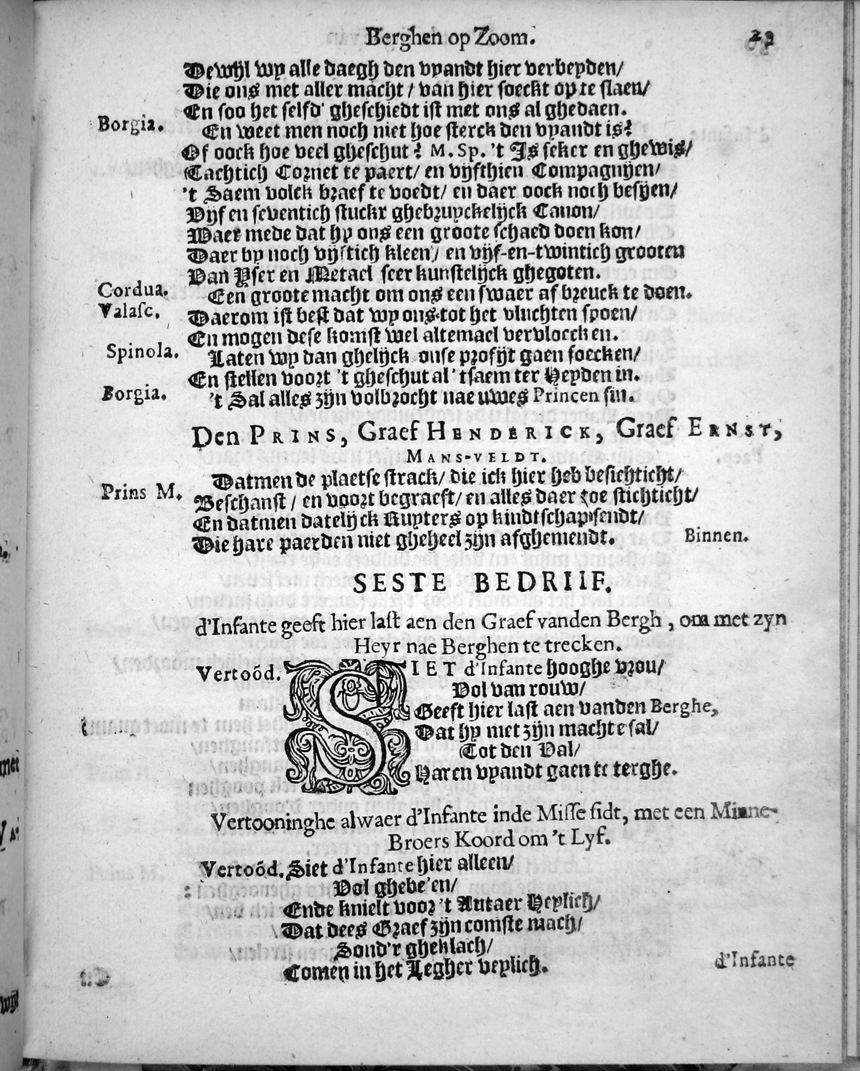 Berghen op Zoom. 29
Dewijl wy alle daegh den vyandt hier verbeyden/
Die ons met aller macht / van hier soeckt op te slaen/
En soo het selfd' gheschiedt ist met ons al ghedaen.
Borgia. En weet men noch niet hoe sterck den vyandt is?
Of oock hoe veel gheschut? M. Sp. 't Is seker en ghewis/
Tachtich Cornet te paert/ en vijfthien Compagnijen/
't Saem volck braef te voedt/ en daer oock noch besijen/
Vijf en seventich stuckx ghebruyckelijck Canon/
Waer mede dat hy ons een groote schaed doen kon/
Daer by noch vijftich kleen/ en vijf-en-twintich grooten
Van Yser en Metael seer kunstelijck ghegoten.
Cordua. Een groote macht om ons een swaer af breuck te doen.
Valasc. Daerom ist best dat wy ons tot het vluchten spoen/
En mogen dese komst wel altemael vervloecken.
Spinola. Laten wy dan ghelijck onse profijt gaen soecken/
En stellen voort 't gheschut al 'tsaem ter Heyden in.
Borgia. 't Sal alles zijn volbrocht nae uwes Princen sin.
Den PRINS, Graef HENDERICK, Graef ERNST,
MANS-VELDT.
Prins M. Datmen de plaetse strack/ die ick hier heb besichticht/
Beschanst / en voort begraeft/ en alles daer toe stichticht/
En datmen datelijck Ruyters op kindtschap sendt/
Die hare paerden niet gheheel zijn afghemendt. Binnen.
SESTE BEDRIIF.
d'Infante geeft hier last aen den Graef vanden Bergh , om met zyn
Heyr nae Berghen te trecken.
Vertoōd. SIET d'Infante hooghe vrou/
Vol van rouw/
Geeft hier last aen vanden Berghe,
Dat hy met zijn macht sal/
Tot den Val/
Haren vyandt gaen te terghe.
Vertooninghe alwaer d'Infante inde Misse sidt, met een Minne-
Broers Koord om 't Lyf.
Vertoōd. Siet d'Infante hier alleen/
Vol ghebe'en/
Ende knielt voor 't Autaer Heylich/
Dat dees Graef zijn comste mach/
Sond'r gheklach/
Comen in het Legher veylich.
d'Infante